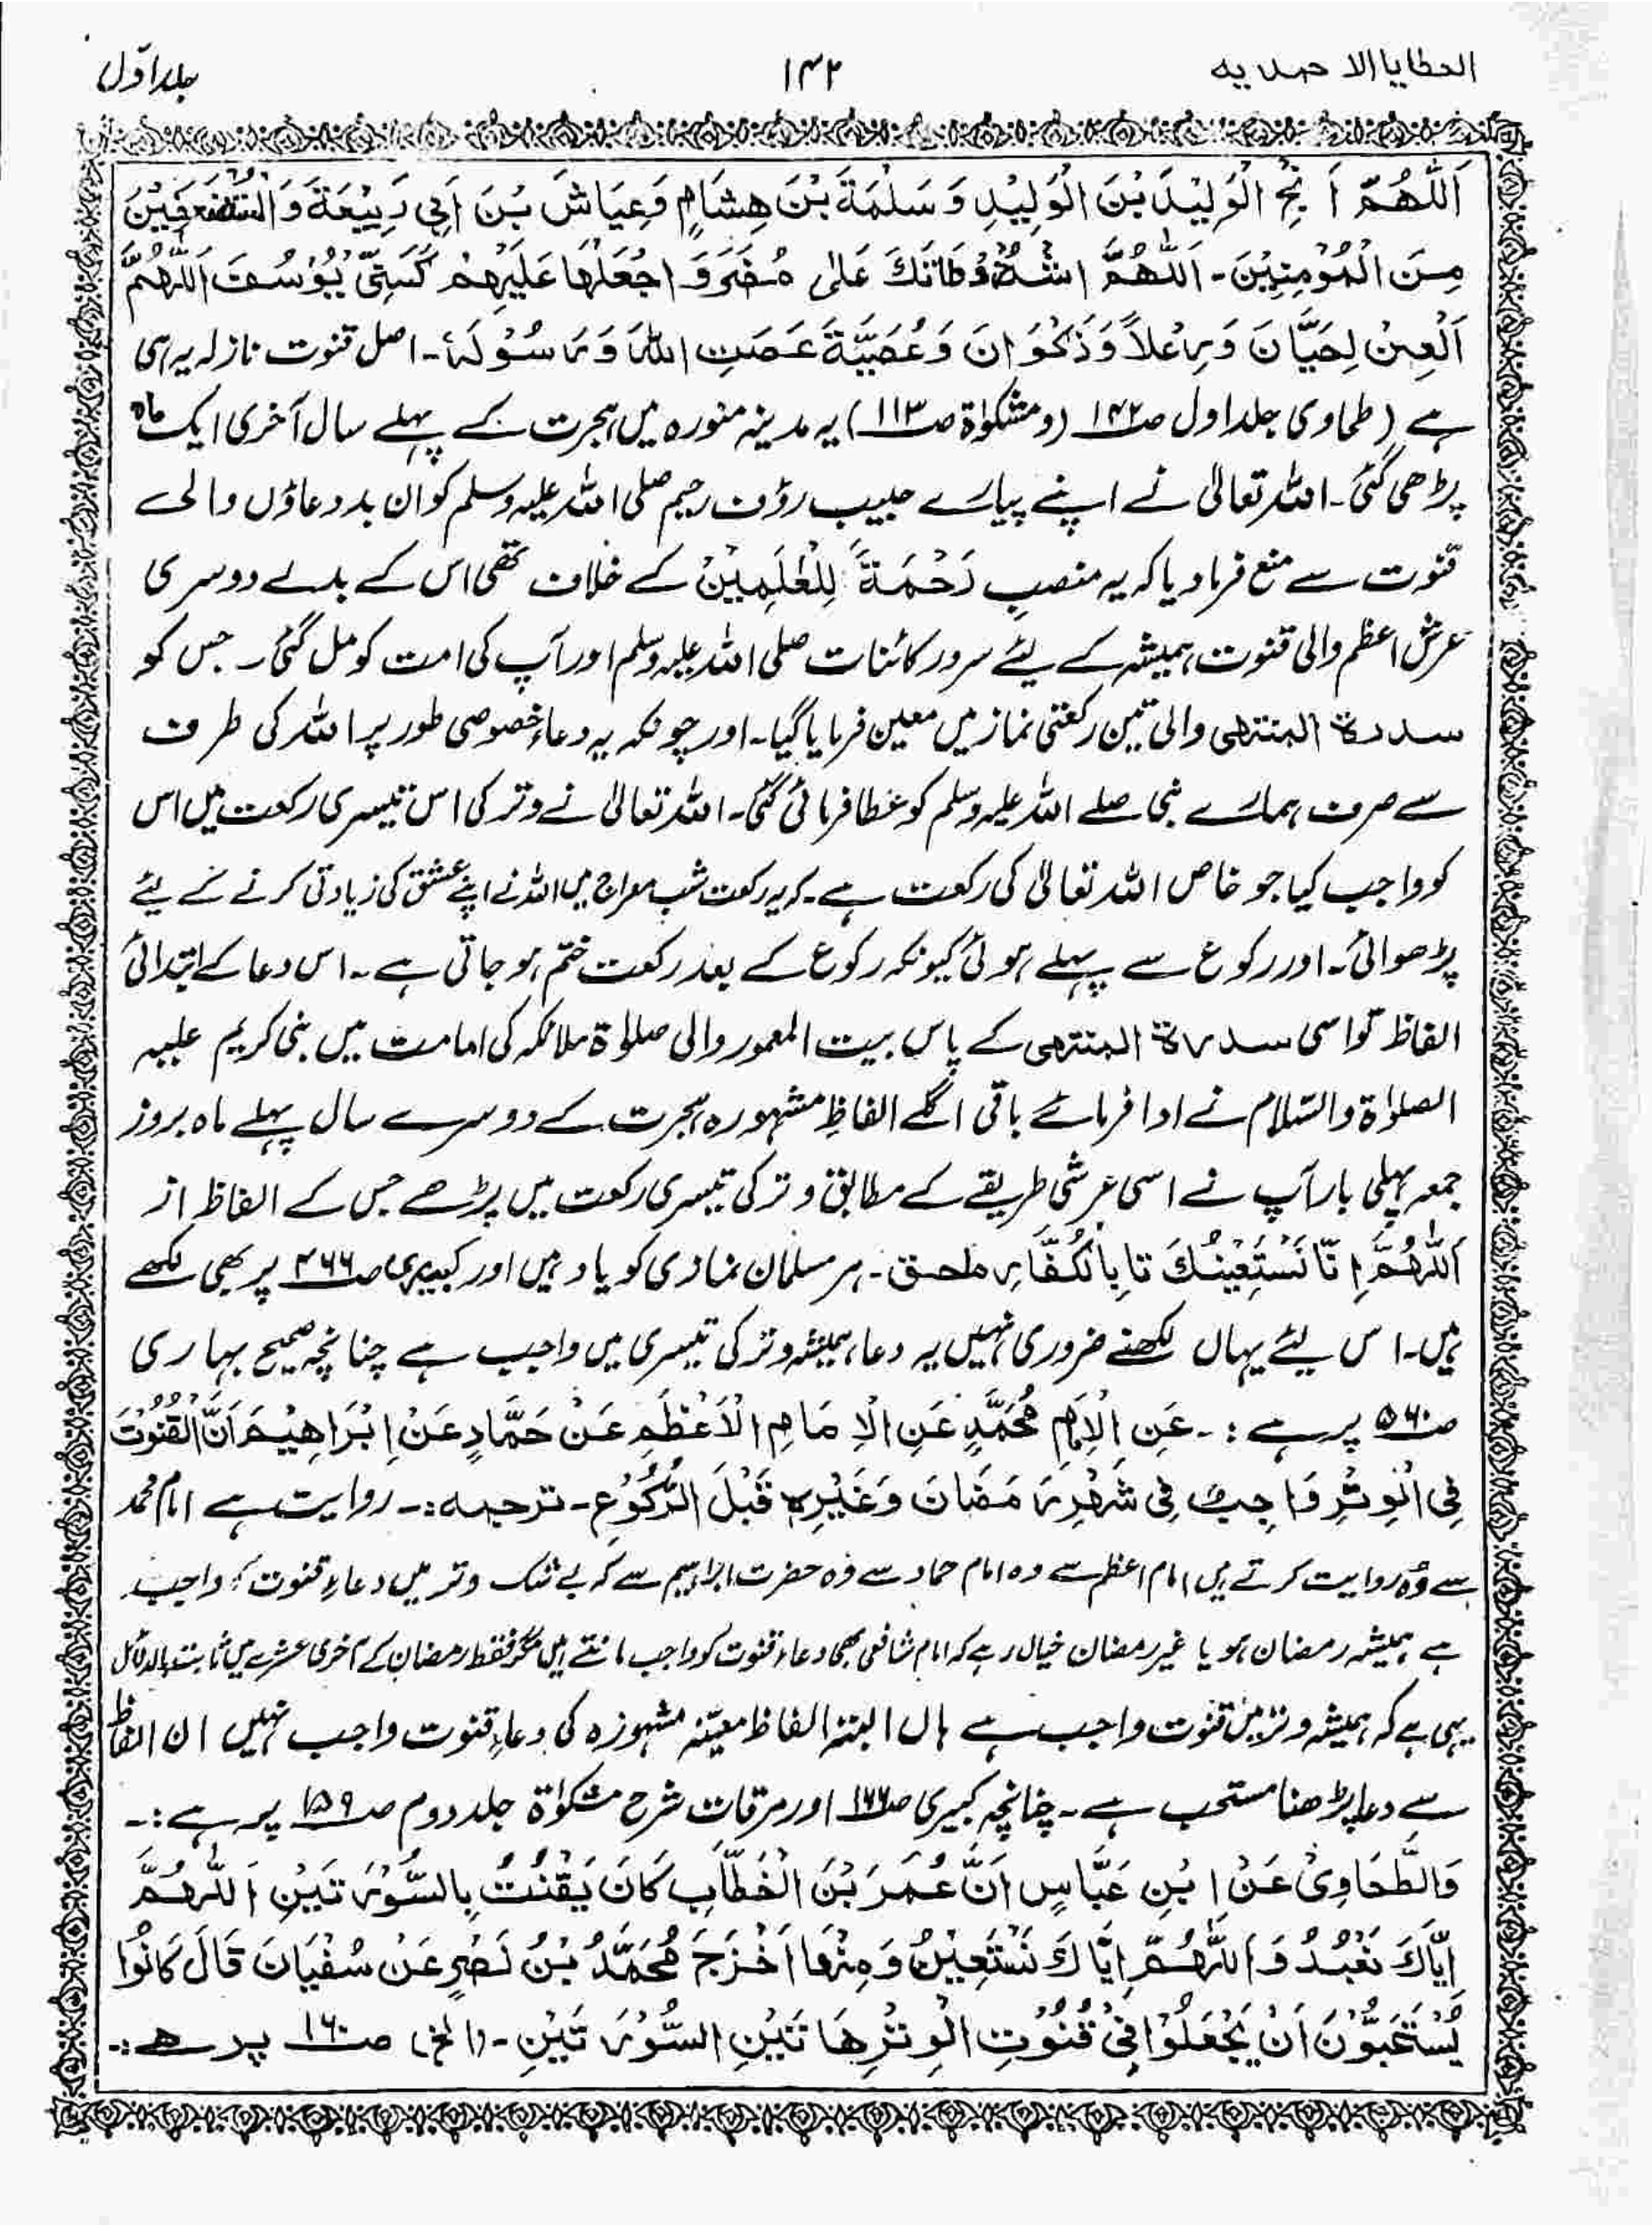 العطایا الاحمدیه
۱۴۲
جلد اوّل
اَللّٰهُمَّ اَنْجِ الْوَلِيْدَ بْنَ الْوَلِيْدِ وَ سَلْمَةَ بْنَ هِشَامٍ وَعِيَاشَ بْنَ اَبِي رَبِيْعَةَ وَالمُسْتَضْعَفِيْنَ
مِنَ الْمُؤْمِنِيْنَ۔ اَللّٰهُمَّ اشْدُدْ وَطَأتَكَ عَلٰى مُضَرَ وَ اجْعَلْهَا عَلَيْهِمْ كَسَنِيِّ يُوْسُفَ اَللّٰهُمَّ
اَلْعِنْ لِحَيَّانَ وَرِعْلاً وَذَكْوَانَ وَعُصَيَّةَ عَصَتِ اللهَ وَرَسُوْلَهٗ۔ اصل قنوت نازلہ یہ ہی
ہے (طحاوی جلد اول صـ۱۴۲ (و مشکوٰۃ صـ۱۱۳) یہ مدینہ منورہ میں ہجرت کے پہلے سال آخری ایک ماہ
پڑھی گئی۔ اللہ تعالیٰ نے اپنے پیارے حبیب رؤف رحیم صلی اللہ علیہ وسلم کو ان بددعاؤں والی
قنوت سے منع فرما دیا کہ یہ منصبِ رَحْمَةً لِلْعٰلَمِيْنَ کے خلاف تھی اس کے بدلے دوسری
عرش اعظم والی قنوت ہمیشہ کے لیئے سرور کائنات صلی اللہ علیہ وسلم اور آپ کی امت کو مل گئی۔ جس کو
سدرۃ المنتہی والی تین رکعتی نماز میں معین فرمایا گیا۔ اور چونکہ یہ دعاء خصوصی طور پر اللہ کی طرف
سے صرف ہمارے نبی صلے اللہ علیہ وسلم کو عطا فرمائی گئی۔ اللہ تعالیٰ نے وتر کی اس تیسری رکعت میں اس
کو واجب کیا جو خاص اللہ تعالیٰ کی رکعت ہے۔ کہ یہ رکعت شب معراج میں اللہ نے اپنے عشق کی زیادتی کرنے کے لیئے
پڑھوائی۔ اور رکوع سے پہلے ہوئی کیونکہ رکوع کے بعد رکعت ختم ہو جاتی ہے۔ اس دعا کے ابتدائی
الفاظ تو اسی سدرۃ المنتہی کے پاس بیت المعمور والی صلوٰۃ ملائکہ کی امامت میں نبی کریم علیہ
الصلوٰۃ والسّلام نے ادا فرمائے باقی اگلے الفاظِ مشہورہ ہجرت کے دوسرے سال پہلے ماہ بروز
جمعہ پہلی بار آپ نے اسی عرشی طریقے کے مطابق وتر کی تیسری رکعت میں پڑھے جس کے الفاظ از
اَللّٰهُمَّ اِنَّا نَسْتَعِيْنُكَ تا بِالْكُفَّارِ ملحق۔ ہر مسلمان نمازی کو یاد ہیں اور کبیری صـ۴۶۶ پر بھی لکھے
ہیں۔ اس لیئے یہاں لکھنے ضروری نہیں یہ دعا ہمیشہ وتر کی تیسری میں واجب ہے چنانچہ صحیح بہاری
صـ۵۶۰ پر ہے :۔ عَنِ الْاِمَامِ مُحَمَّدٍ عَنِ الْاِمَامِ الْاَعْظَمِ عَنْ حَمَّادٍ عَنْ اِبْرَاهِيْمَ اَنَّ الْقُنُوْتَ
فِي الْوِتْرِ وَاجِبٌ فِي شَهْرِ رَمَضَانَ وَغَيْرِهٖ قَبْلَ الرُّكُوْعِ۔ ترجمہ:۔ روایت ہے امام محمد
سے وُہ روایت کرتے ہیں امام اعظم سے وہ امام حماد سے وُہ حضرت ابراہیم سے کہ بے شک وتر میں دعاءِ قنوت واجب
ہے ہمیشہ رمضان ہو یا غیر رمضان خیال رہے کہ امام شافعی بھی دعاء قنوت کو واجب مانتے ہیں مگر فقط رمضان کے آخری عشرے میں ثابت بالدلائل
یہی ہے کہ ہمیشہ وتر میں قنوت واجب ہے ہاں البتہ الفاظ معیّنہ مشہورہ کی دعاءِ قنوت واجب نہیں ان الفاظ
سے دعا پڑھنا مستحب ہے۔ چنانچہ کبیری صـ۱۶۶ اور مرقات شرح مشکوٰۃ جلد دوم صـ۱۵۹ پر ہے :۔
وَالطَّحَاوِيْ عَنْ اِبْنِ عَبَّاسٍ اَنَّ عُمَرَ بْنَ الْخَطَّابِ كَانَ يَقْنُتُ بِالسُّوْرَتَيْنِ اَللّٰهُمَّ
اِيَّاكَ نَعْبُدُ وَ اَللّٰهُمَّ اِيَّاكَ نَسْتَعِيْنُ وَمِنْهَا اَخْرَجَ مُحَمَّدُ بْنُ نَصْرٍ عَنْ سُفْيَانَ قَالَ كَانُوْا
يَسْتَحِبُّوْنَ اَنْ يَجْعَلُوْا فِيْ قُنُوْتِ الْوِتْرِ هَاتَيْنِ السُّوْرَتَيْنِ۔ (الخ) صـ۱۶۰ پر ھے:۔